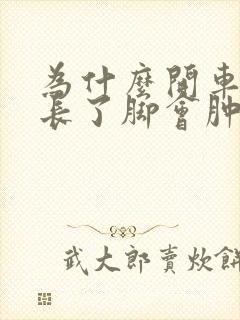 為什麼開車
長了腳會肿
武大郎賣炊餅